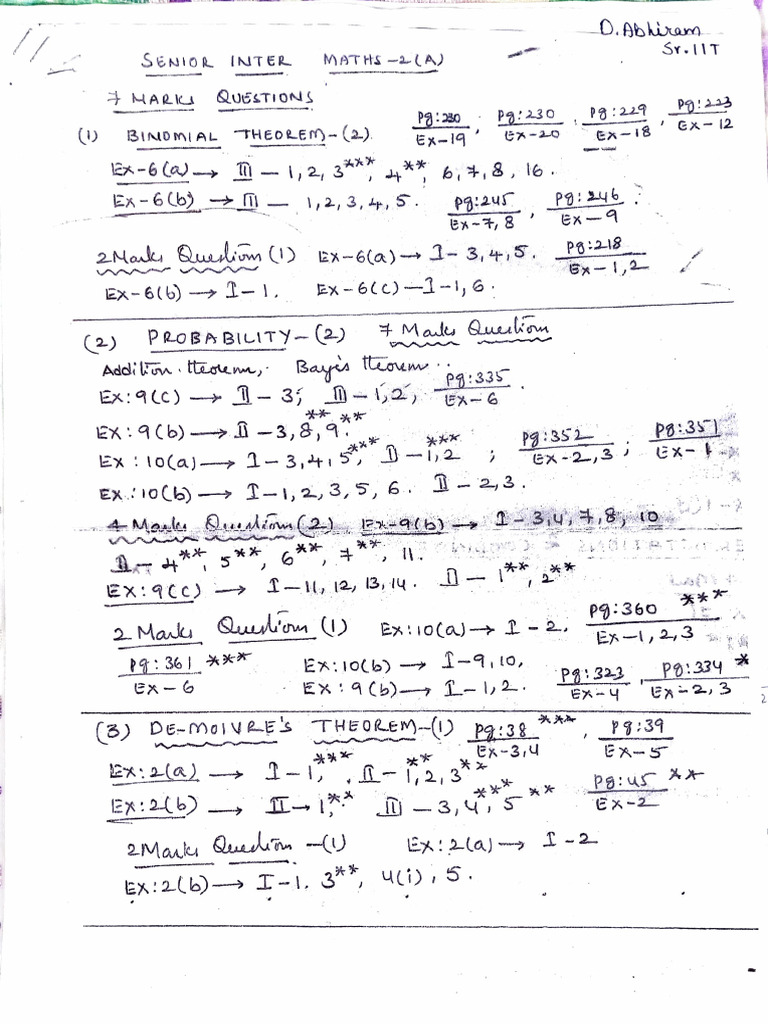 D. Abhiram
Sr. IIT
SENIOR INTER MATHS-2(A)
7 MARKS QUESTIONS
(1) BINOMIAL THEOREM-(2) Pg:230/Ex-19, Pg:230/Ex-20, Pg:229/Ex-18, Pg:223/Ex-12
Ex-6(a) → III - 1, 2, 3***, 4**, 6, 7, 8, 16.
Ex-6(b) → III - 1, 2, 3, 4, 5. Pg:245/Ex-7, 8, Pg:246/Ex-9.
2 Marks Question (1) Ex-6(a) → I - 3, 4, 5. Pg:218/Ex-1, 2
Ex-6(b) → I - 1. Ex-6(c) - I - 1, 6.
(2) PROBABILITY-(2) 7 Marks Question
Addition theorem, Baye's theorem..
Ex:9(c) → II - 3; III - 1, 2, Pg:335/Ex-6.
Ex:9(b) → II - 3, 8**, 9**.
Ex:10(a) → I - 3, 4, 5***, II - 1***, 2 ; Pg:352/Ex-2, 3 ; Pg:351/Ex-1
Ex:10(b) → I - 1, 2, 3, 5, 6. II - 2, 3.
4 Marks Question (2) Ex-9(b) → I - 3, 4, 7, 8, 10
II - 4**, 5**, 6**, 7**, 11.
Ex:9(c) → I - 11, 12, 13, 14. II - 1**, 2**
2 Marks Question (1) Ex:10(a) → I - 2. Pg:360/Ex-1, 2, 3 ***
Pg:361/Ex-6 *** Ex:10(b) → I - 9, 10,
Ex:9(b) → I - 1, 2. Pg:323/Ex-4, Pg:334/Ex-2, 3 *
(3) DE-MOIVRE'S THEOREM-(1) Pg:38/Ex-3, 4 ***, Pg:39/Ex-5
Ex:2(a) → I - 1,*** , II - 1, 2**, 3**
Ex:2(b) → II - 1,** III - 3, 4,*** 5 ** Pg:45/Ex-2 **
2 Marks Question -(1) Ex:2(a) → I - 2
Ex:2(b) → I - 1. 3**, 4(i), 5.